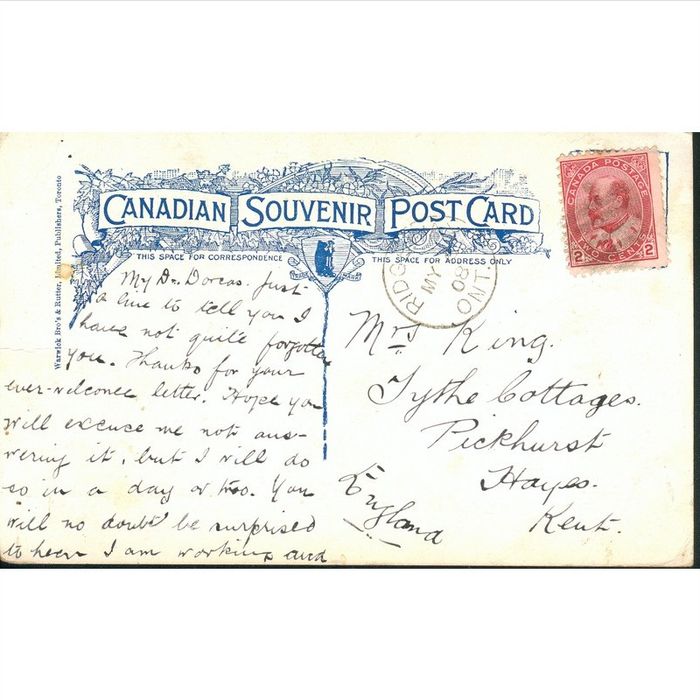 CANADIAN SOUVENIR POST CARD
THIS SPACE FOR CORRESPONDENCE
THIS SPACE FOR ADDRESS ONLY
Warwick Bro's & Rutter, Limited, Publishers, Toronto
CANADA POSTAGE
2 TWO CENTS 2
RIDG
MY
08
ONT.
My Dr. Dorcas. Just
a line to tell you I
have not quite forgotten
you. Thanks for your
ever-welcome letter. Hope you
will excuse me not ans-
wering it, but I will do
so in a day or two. You
will no doubt be surprised
to hear I am working and
Mrs King.
Tythe Cottages.
Pickhurst
Hayes.
Kent.
England